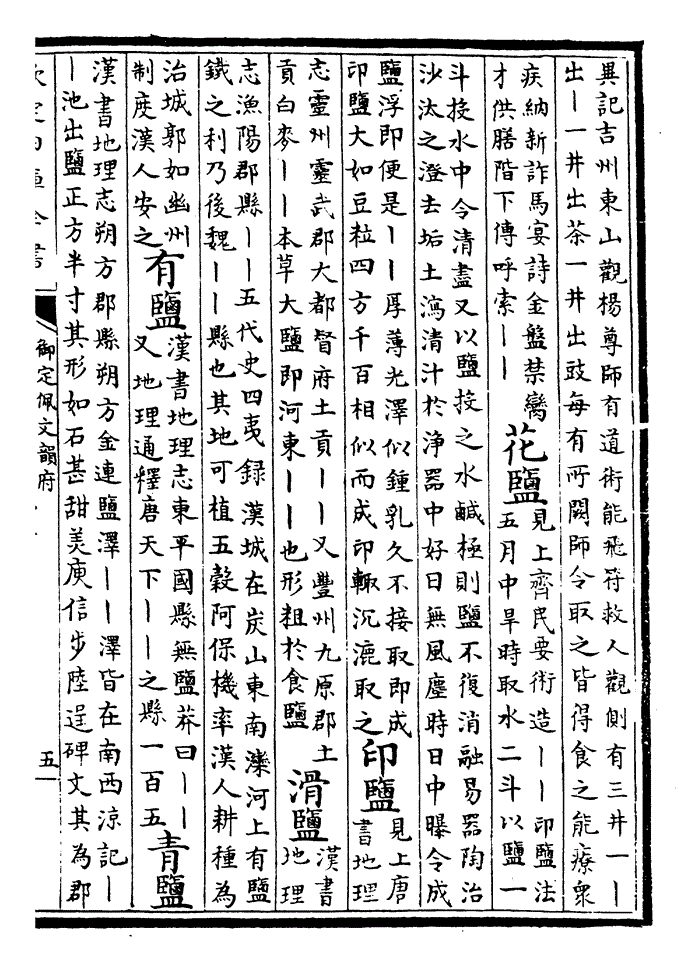 異記吉州東山觀楊尊師有道術能飛符救人觀側有三井一丨
出丨一井出茶一井出豉每有所闕師令取之皆得食之能療衆
疾納新詐馬宴詩金盤禁臠
才供膳階下傳呼索丨丨
花鹽
見上齊民要術造丨丨印鹽法
五月中旱時取水二斗以鹽一
斗投水中令清盡又以鹽投之水鹹極則鹽不復消融易器陶治
沙汰之澄去垢土瀉清汁於淨器中好日無風塵時日中曝令成
鹽浮即便是丨丨厚薄光澤似鍾乳久不接取即成
印鹽大如豆粒四方千百相似而成印輙沉漉取之
印鹽
見上唐
書地理
志靈州靈武郡大都督府土貢丨丨又豐州九原郡土
貢白麥丨丨本草大鹽即河東丨丨也形粗於食鹽
滑鹽
漢書
地理
志漁陽郡縣丨丨五代史四夷録漢城在炭山東南灤河上有鹽
鐵之利乃後魏丨丨縣也其地可植五穀阿保機率漢人耕種為
治城郭如幽州
制度漢人安之
有鹽
漢書地理志東平國縣無鹽莽曰丨丨
又地理通釋唐天下丨丨之縣一百五
青鹽
漢書地理志朔方郡縣朔方金連鹽澤丨丨澤皆在南西涼記丨
丨池出鹽正方半寸其形如石甚甜美庾信步陸逞碑文其為郡
欽定四庫全書
御定佩文韻府
五